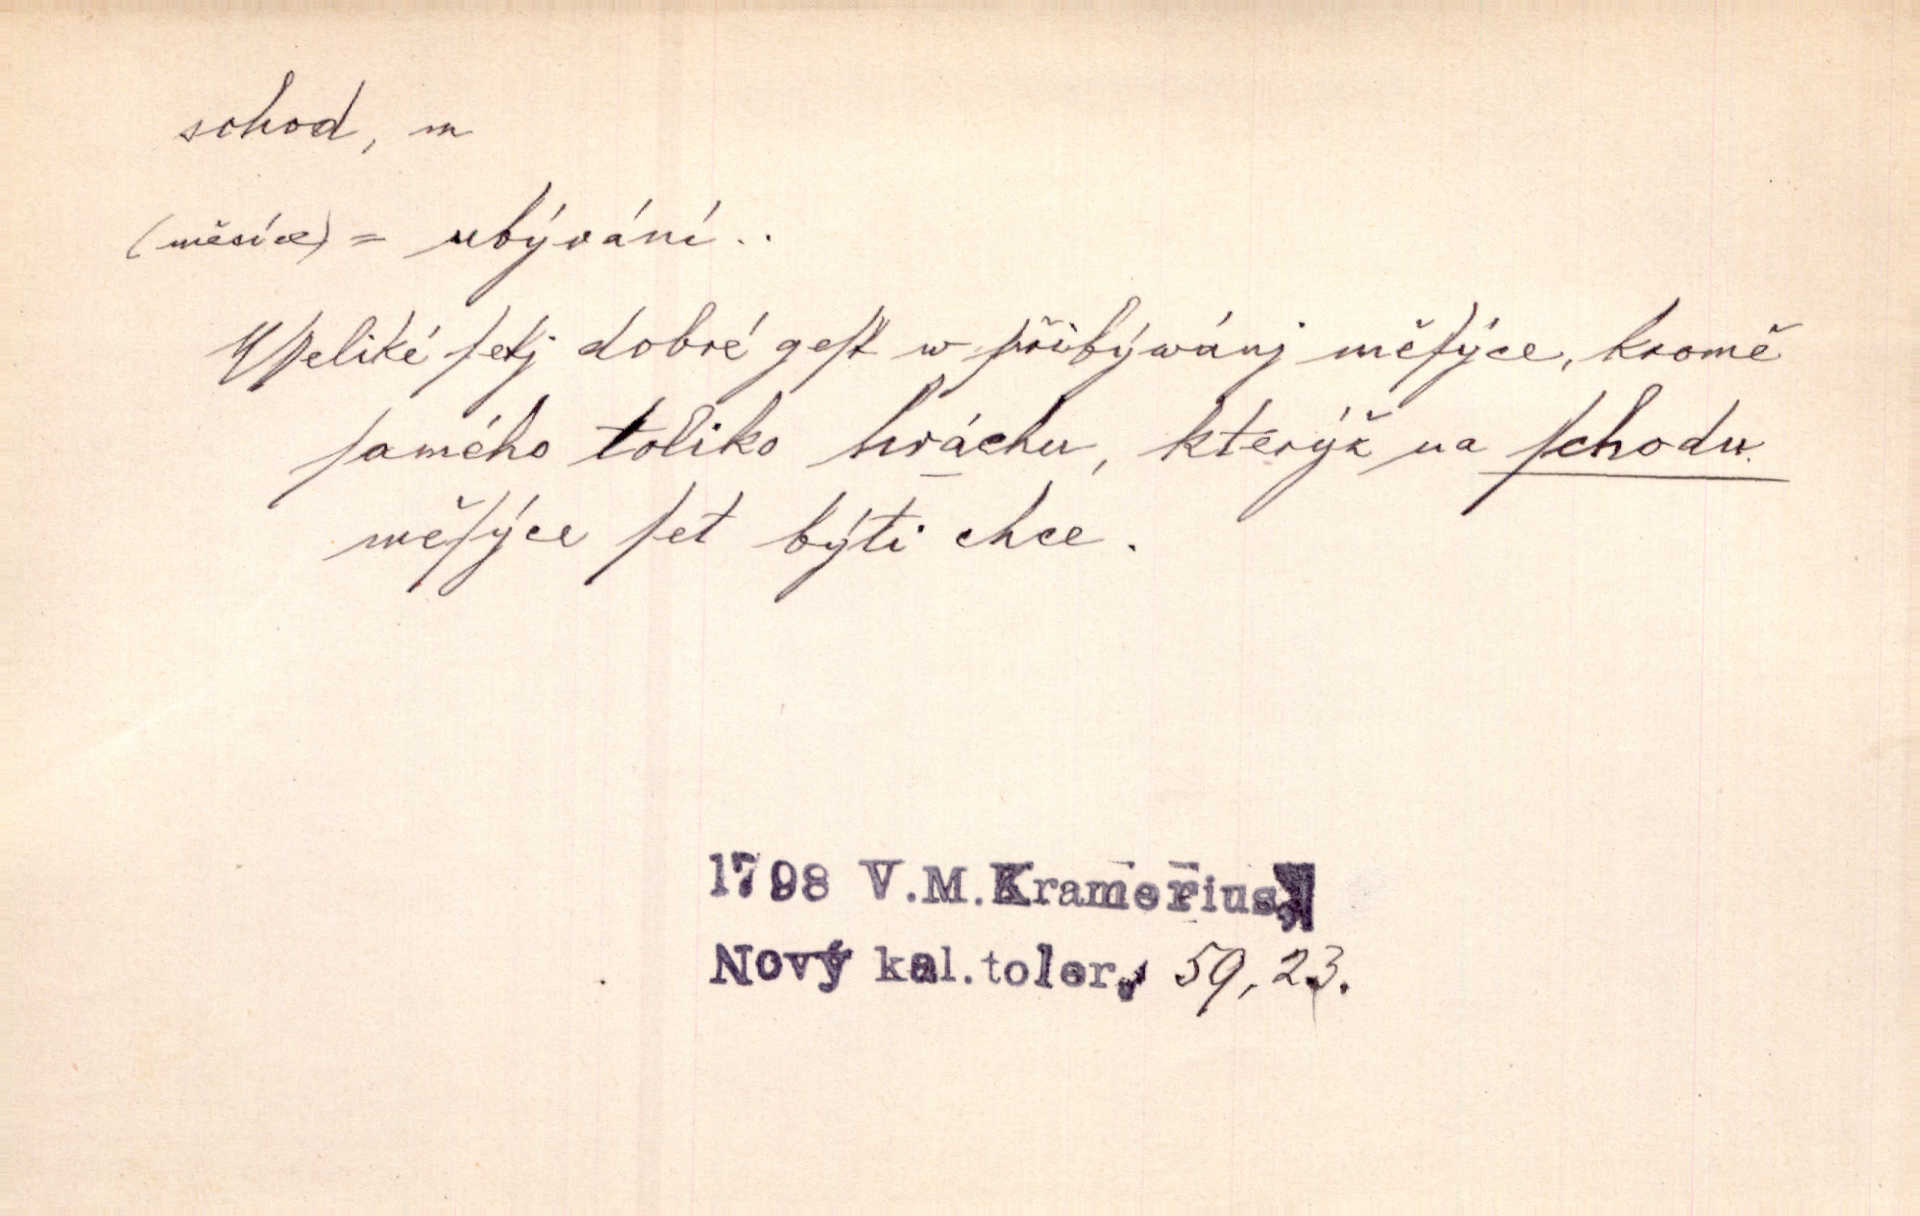 schod, m
(měsíce) = ubývání..
Wſseliké ſetj dobré geſt w přibýwánj měſýce, kromě
ſamého toliko hráchu, kterýž na ſchodu
měſýce ſet býti chce.
1798 V.M.Kramerius
Nový kal.toler. 59, 23.